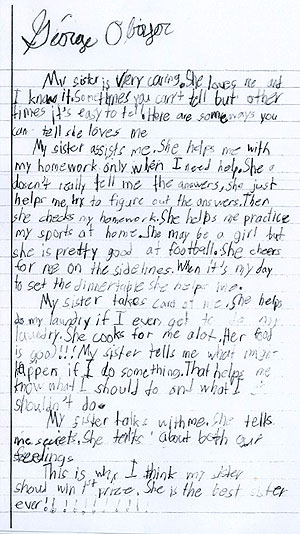 George
My sister is very caring. She loves me and
I know it. Sometimes you can't tell but other
times it's easy to tell. Here are some ways you
can tell she loves me
My sister assists me. She helps me with
my homework only when I need help. She
doesn't really tell me the answers, She just
helps me try to figure out the answers. Then
she checks my homework. She helps me practice
my sports at home. She may be a girl but
she is pretty good at football. She cheers
for me on the sidelines. When it's my day
to set the dinner table she helps me.
My sister takes care of me. She helps
do my laundry if I ever get to do my
laundry. She cooks for me alot. Her food
is good!!! My sister tells me what might
happen if I do something. That helps me
know what I should do and what I
shouldn't do.
My sister talks with me. She tells
me secrets. She talks about both our
feelings
This is why I think my sister
should win 1st prize. She is the best sister
ever!!!!!!!!!